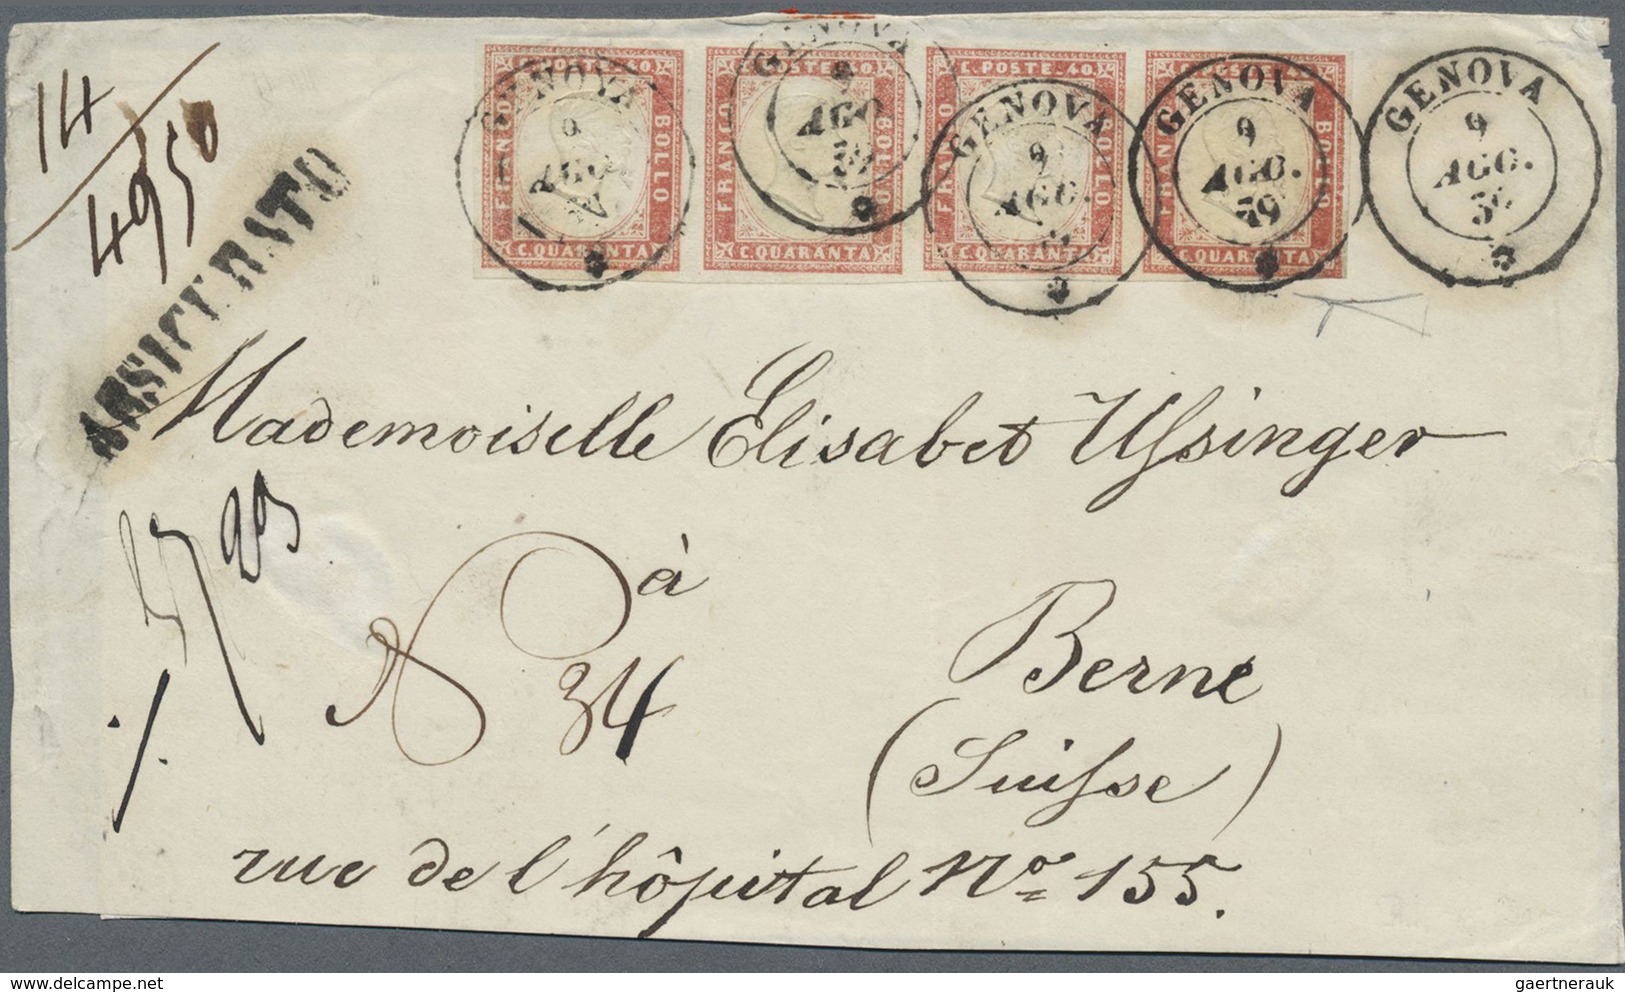 14
4950
ASSICURATO
C. POSTE. 40 C. POSTE. 40 C. POSTE. 40 C. POSTE. 40
FRANCO BOLLO FRANCO BOLLO FRANCO BOLLO FRANCO BOLLO
C. QUARANTA C. QUARANTA C. QUARANTA C. QUARANTA
GENOVA 9 AGO. 59
GENOVA 9 AGO. 59
GENOVA 9 AGO. 59
GENOVA 9 AGO. 59
GENOVA 9 AGO. 59
Mademoiselle Elisabet Ussinger
à
34
Berne
(Suisse)
rue de l'hôpital No 155.
delcampe.net
gaertnerauk